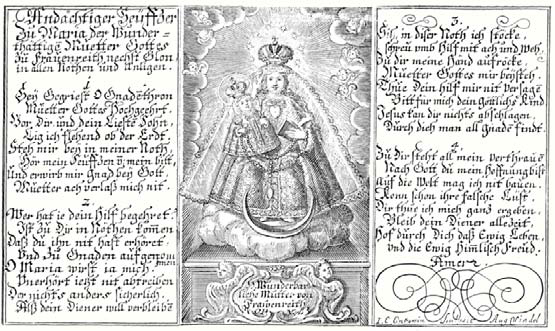 Andächtiger Seuffzer
Zu Maria der Wunder=
thättige Muetter Gottes
Zu Frauenreith, nechst Glon
in allen Nöthen und Anligen.
1.
Sey Gegriest O Gnadethron
Muetter Gottes Hochgehrt.
Vor Dir und dein Lieste Sohn,
Lig ich flehend ob der Erdt.
Steh mir bey in meiner Noth,
Hör mein Seuffzen v̈ mein bitt,
Und erwirb mir Gnad bey Gott,
Muetter ach verlaß mich nit.
2.
Wer hat ie dein Hilf begehret
Ist zu Dir in Nöthen komen
Daß du ihn nit hast erhöret
Und Zu Gnaden aufgenom
men
O Maria wirst ia mich
Unerhört iezt nit abtreiben
Der nichts anders sicherlich.
Alß dein Diener will verbleibē
Wunderbar
liche Mutter von
Frauenreith
3.
Sih, in diser Noth ich stöcke,
schreü vmb Hilf mit ach und Weh.
Zu dir meine Hand aufröcke,
Muetter Gottes mir beysteh.
Thue Dein hilf mir nit versagē
Bitt fur mich dein göttlichs Kind
Jesus kan dir nichts abschlagen
Durch dich man all Gnade findt.
4.
Zu dir steht all mein verthraue
Nach Gott du mein Hoffnung bist
Auf die Welt mag ich nit bauen.
Konn schon ihre falsche Lust.
Dir thue ich mich ganz ergeben,
Bleib dein Diener allezeit.
Hof durch Dich daß Ewig Leben,
und die Ewig Himlisch Freud.
Amen